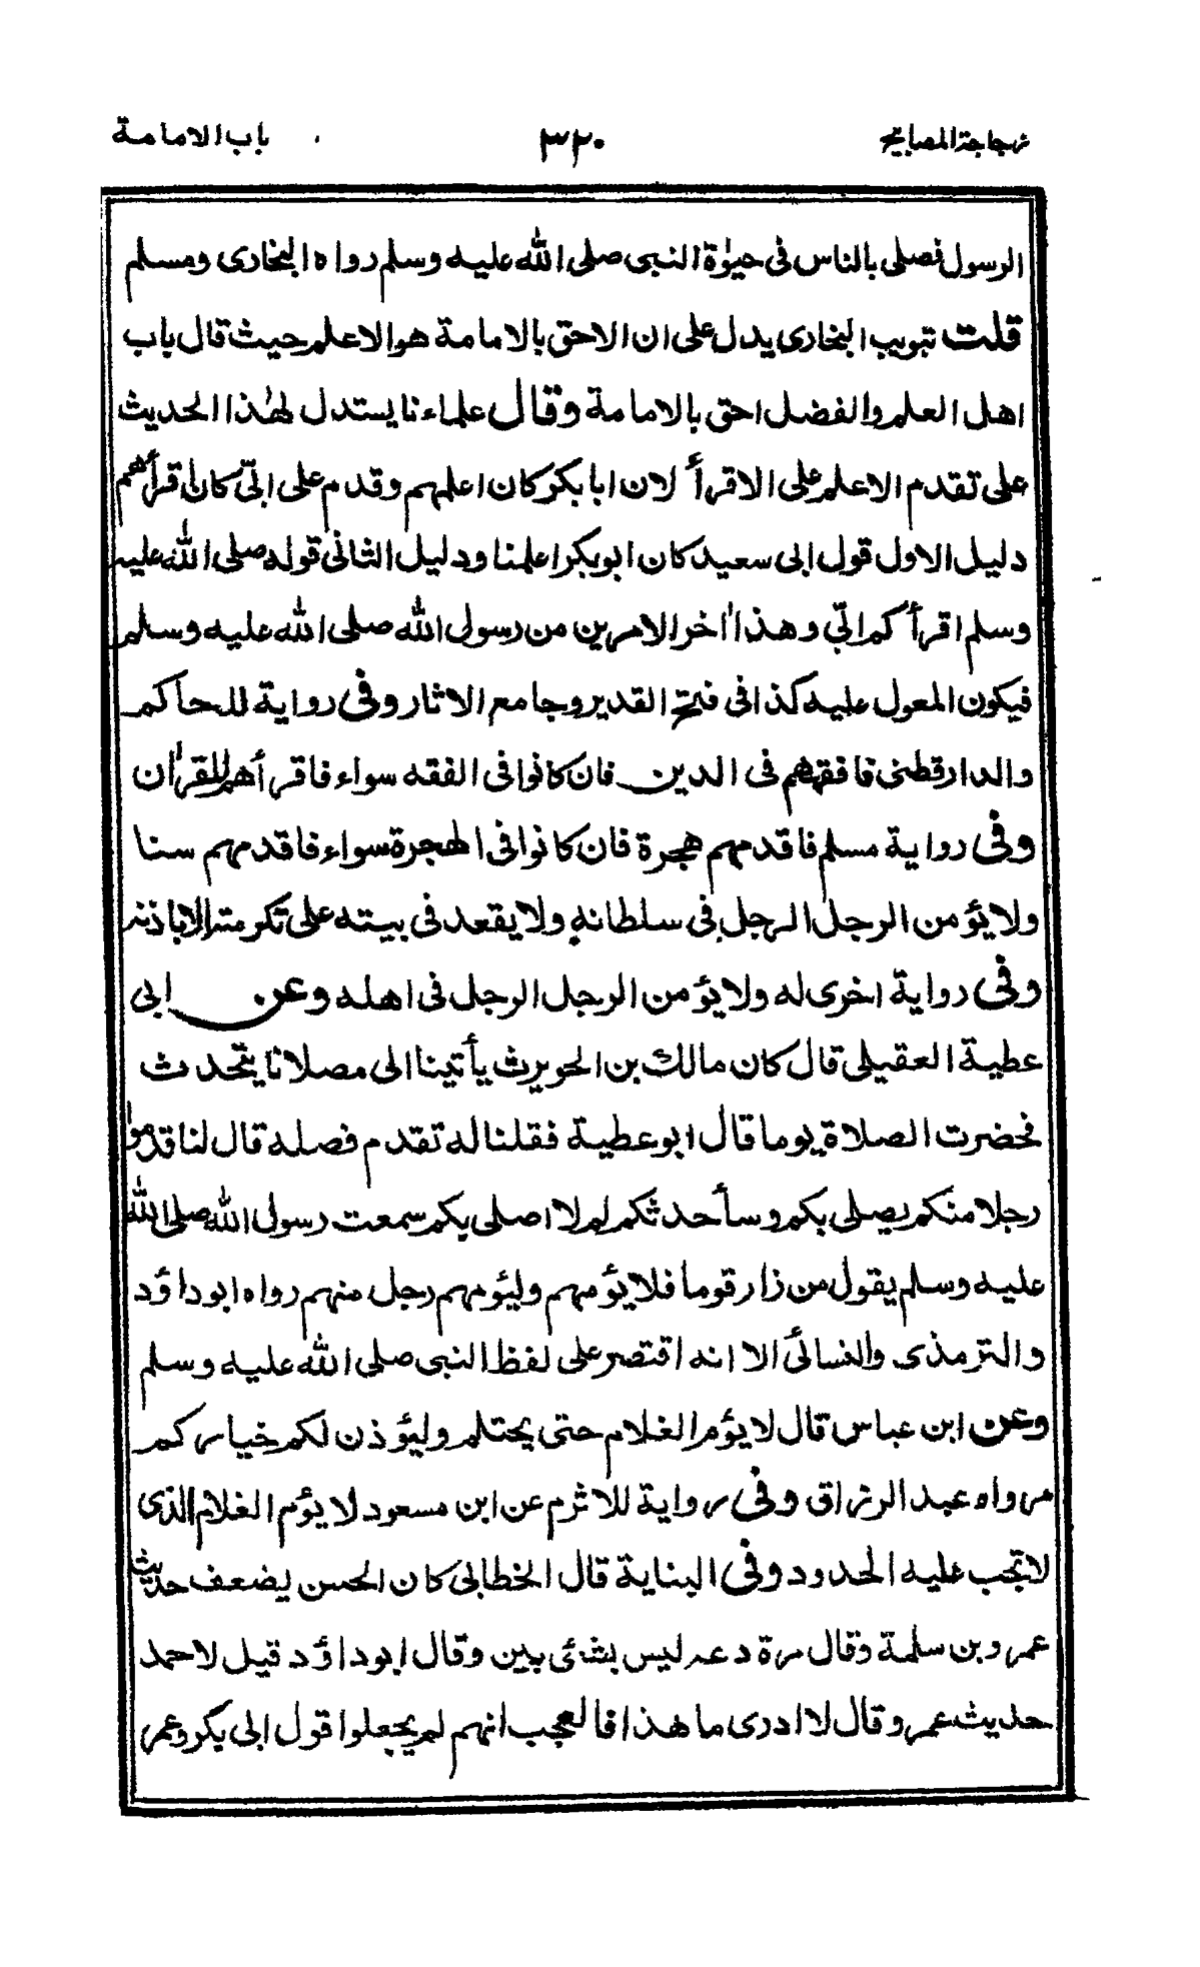 زجاجة المصابيح ٣٢٠ باب الامامة
الرسول فصلى بالناس فى حيوٰة النبى صلى الله عليه وسلم رواه البخارى ومسلم
قلت تبويب البخارى يدل على ان الاحق بالامامة هو الاعلم حيث قال باب
اهل العلم والفضل احق بالامامة وقال علماءنا يستدل لهٰذا الحديث
على تقدم الاعلم على الاقرأ لان ابا بكر كان اعلمهم وقدم على ابىّ كان اقرأهم
دليل الاول قول ابى سعيد كان ابوبكر اعلمنا ودليل الثانى قوله صلى الله عليه
وسلم اقرأكم ابىّ وهذا اٰخر الامرين من رسول الله صلى الله عليه وسلم
فيكون المعول عليه كذا فى فتح القدير وجامع الاثار وفى رواية للحاكم
والدارقطنى فافقههم فى الدين فان كانوا فى الفقه سواء فاقرأهم للقراٰن
وفى رواية مسلم فاقدمهم هجرة فان كانوا فى الهجرة سواء فاقدمهم سنا
ولا يؤمن الرجل الرجل فى سلطانهٖ ولا يقعد فى بيته على تكرمته الا باذنه
وفى رواية اخرى له ولا يؤمن الرجل الرجل فى اهله وعن ابى
عطية العقيلى قال كان مالك بن الحويرث يأتينا الى مصلانا يتحدث
فحضرت الصلاة يوما قال ابو عطية فقلنا له تقدم فصله قال لنا قدموا
رجلا منكم يصلى بكم وسأحدثكم لم لا اصلى بكم سمعت رسول الله صلى الله
عليه وسلم يقول من زار قوما فلا يؤمهم وليؤمهم رجل منهم رواه ابوداؤد
والترمذى والنسائى الا انه اقتصر على لفظ النبى صلى الله عليه وسلم
وعن ابن عباس قال لا يؤم الغلام حتى يحتلم وليؤذن لكم خياركم
رواه عبد الرزاق وفى رواية للاثرم عن ابن مسعود لا يؤم الغلام الذى
لا تجب عليه الحدود وفى البناية قال الخطابى كان الحسن يضعف حديث
عمرو بن سلمة وقال مرة دعه ليس بشئى بين وقال ابوداؤد قيل لاحمد
حديث عمرو قال لا ادرى ما هذا فالعجب انهم لم يجعلوا قول ابى بكر وعمر